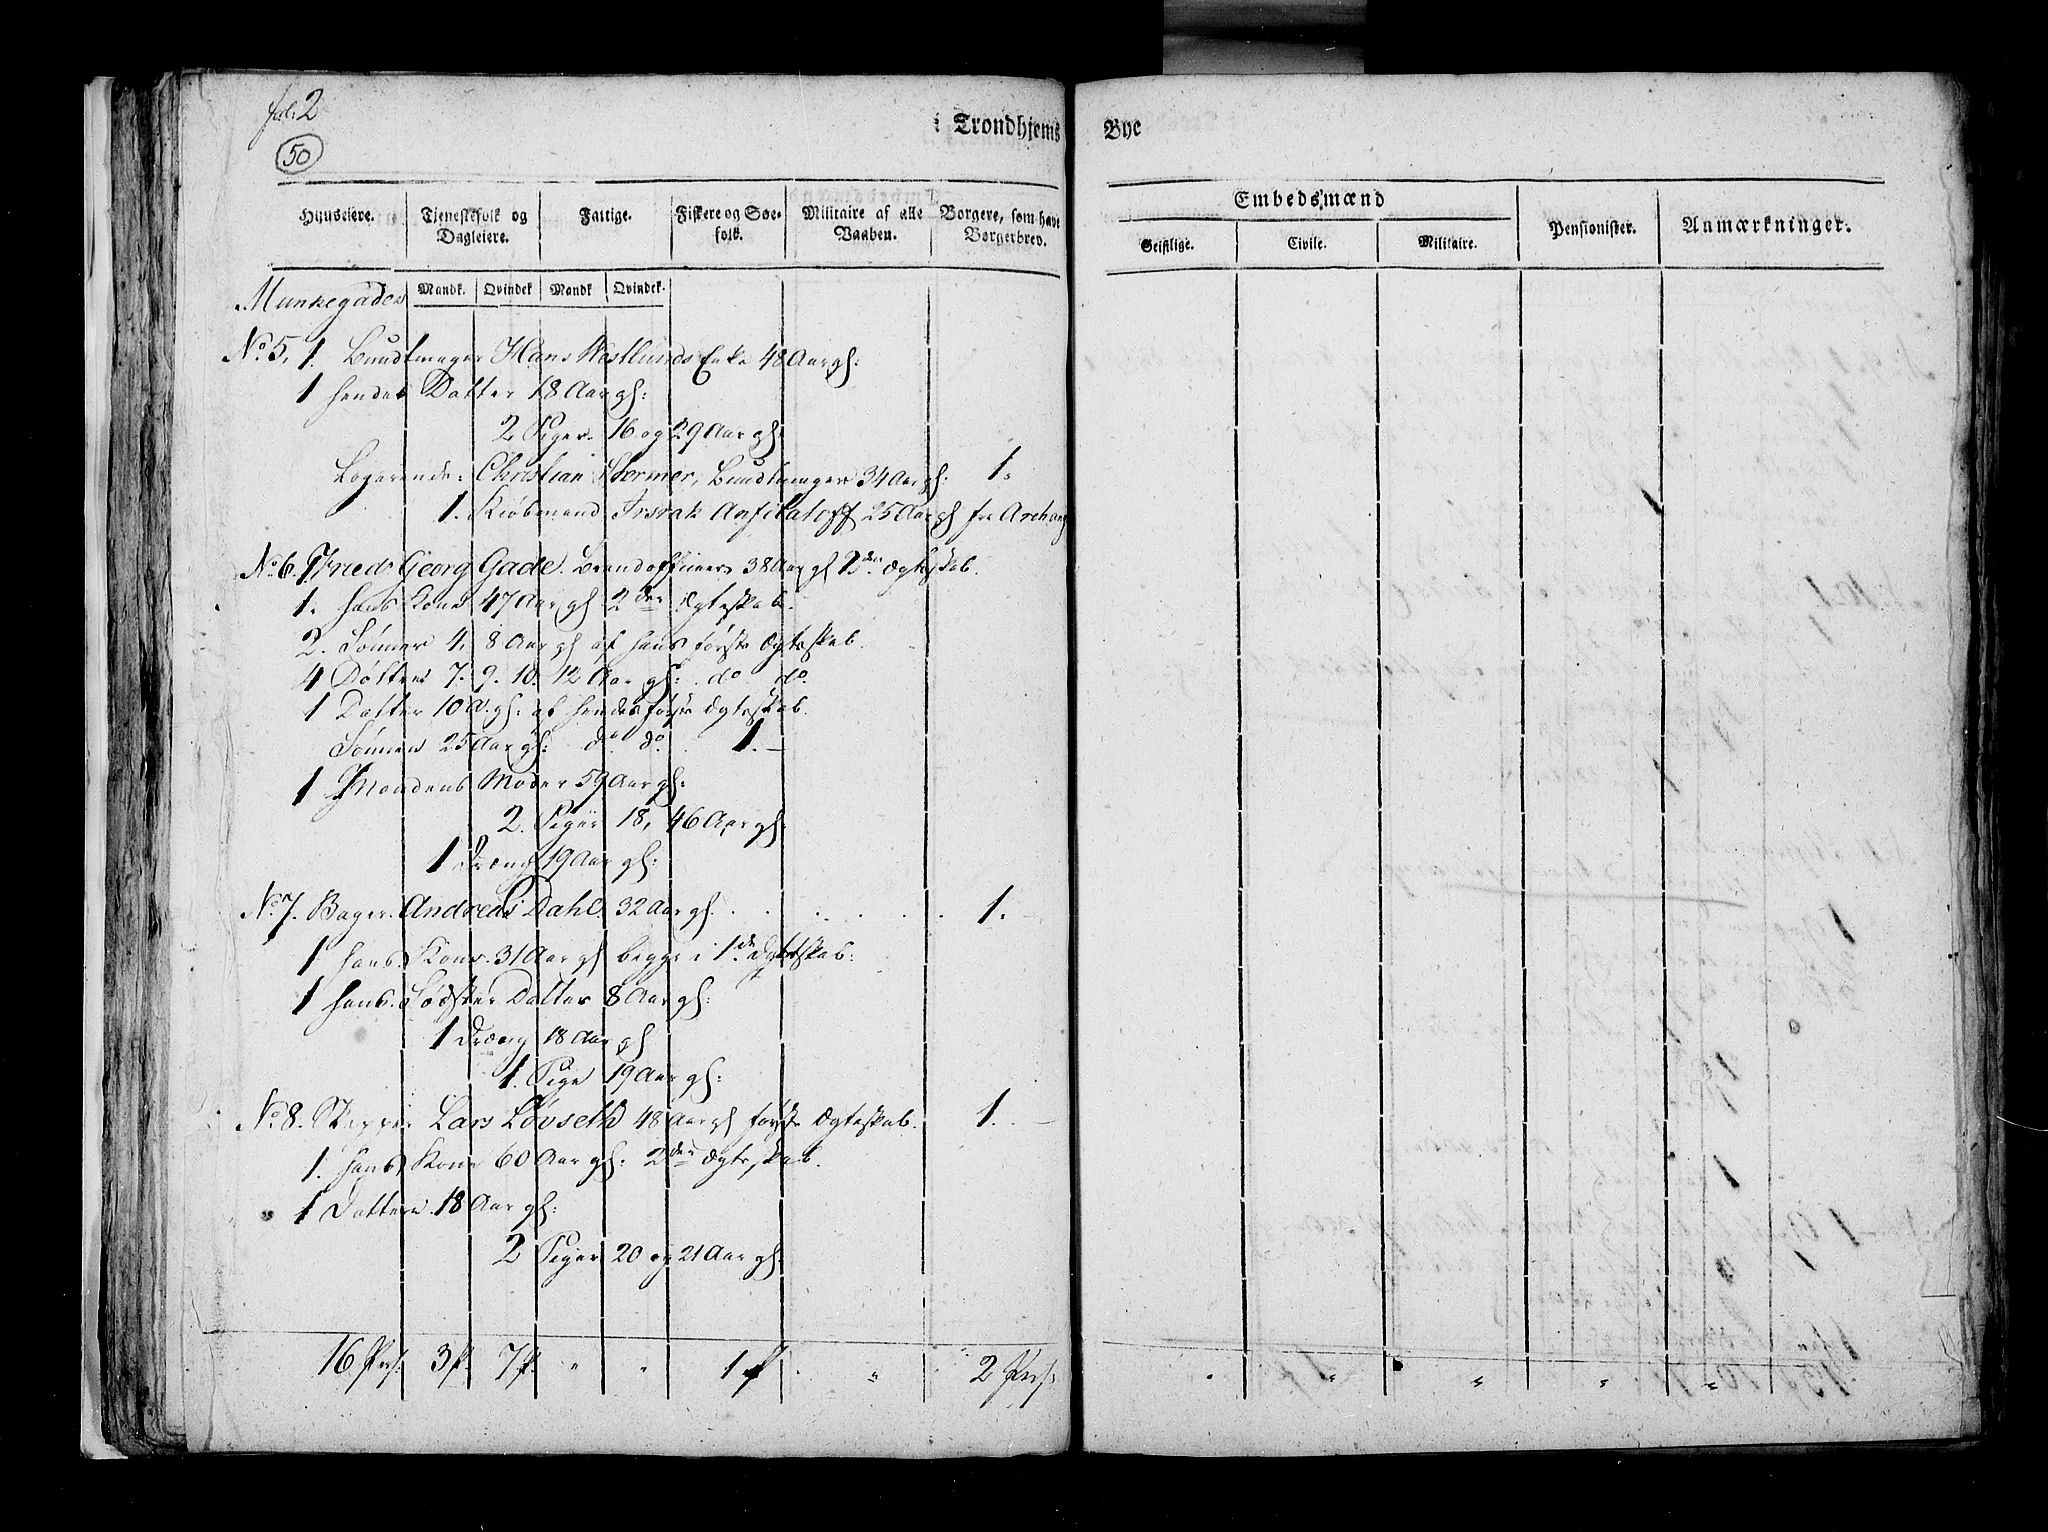 fol: 2
50
i Trondhjems Bye
Huuseiere. Tjenestefolk og Dagleiere. Fattige. Fiskere og Søefolk. Militaire af alle Vaaben. Borgere, som have Borgerbrev. Embedsmænd Pensionister. Anmærkninger.
Geistlige. Civile. Militaire.
Mandk. Qvindek Mandk Qvindek.
Munkegaden
No 5, 1. Bundtmager Hans Westlunds Enke 48 Aar gl:
1 hendes Datter 18 Aar gl:
2 Piger 16 og 29 Aar gl:
Logerende: Christian Stormer, Bundtmager 34 Aar gl: 1.
1. Kiøbmand Anfilatoff 25 Aar gl fra Archang
No 6. 1 Fried: Georg Gade. 38 Aar gl 2den Ægteskab.
1. hans Kone 47 Aar gl 2den Ægteskab.
2. Sønner 4, 8 Aar gl af hans første Ægteskab.
4 Døttre 7. 9. 10. 12 Aar gl: do do.
1 Datter 10 A. gl: af hendes første Ægteskab.
Sønnen 25 Aar gl: do do. 1.
1 Mandens Moder 59 Aar gl:
2. Piger 18, 46 Aar gl:
1 Dreng 19 Aar gl:
No 7. Bager. Andreas Dahl 32 Aar gl. 1.
1 hans Kone 31 Aar gl begge i 1ste Ægteskab:
1 hans Søster Datter 8 Aar gl:
1 Dreng 18 Aar gl
1. Pige 19 Aar gl:
No 8. Skipper Lars Løvseth 48 Aar gl første Ægteskab. 1.
1. hans Kone 60 Aar gl: 2den Ægteskab.
1 Datter 18 Aar gl:
2 Piger 20 og 21 Aar gl:
16 Pers. 3 p. 7 p. " " 1 p " 2 Pers: " " " " "